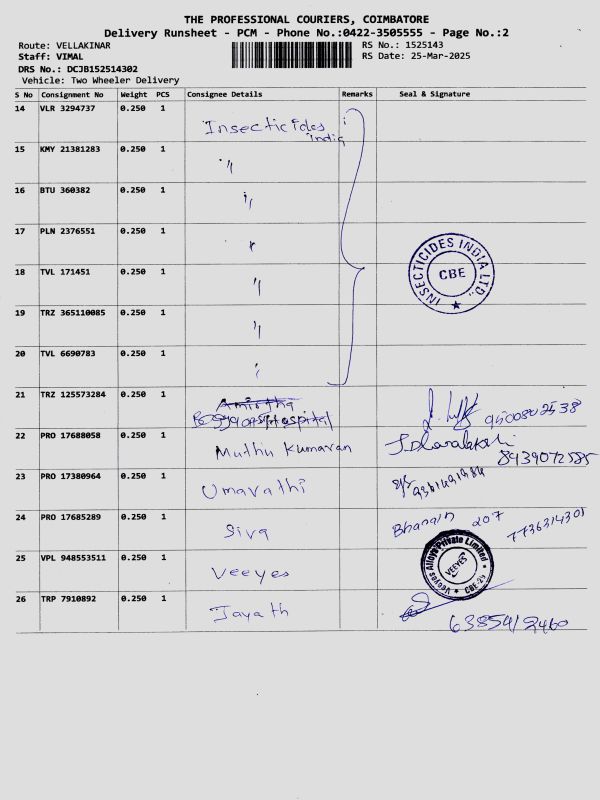 THE PROFESSIONAL COURIERS, COIMBATORE
Delivery Runsheet - PCM - Phone No.:0422-3505555 - Page No.:2
Route: VELLAKINAR RS No.: 1525143
Staff: VIMAL RS Date: 25-Mar-2025
DRS No.: DCJB152514302
Vehicle: Two Wheeler Delivery
S No Consignment No Weight PCS Consignee Details Remarks Seal & Signature
14 VLR 3294737 0.250 1 Insecticides India
15 KMY 21381283 0.250 1 "
16 BTU 360382 0.250 1 "
17 PLN 2376551 0.250 1 "
INSECTICIDES INDIA LTD., CBE
18 TVL 171451 0.250 1 "
19 TRZ 365110085 0.250 1 "
20 TVL 6690783 0.250 1 "
21 TRZ 125573284 0.250 1 Hospital
22 PRO 17688058 0.250 1 Muthu Kumaran 8939072585
23 PRO 17380964 0.250 1 Umavathi
24 PRO 17685289 0.250 1 Siva 207 7736314301
25 VPL 948553511 0.250 1 Veeyes
Veeyes Alloys Private Limited VEEYES CBE-29
26 TRP 7910892 0.250 1 Jayath